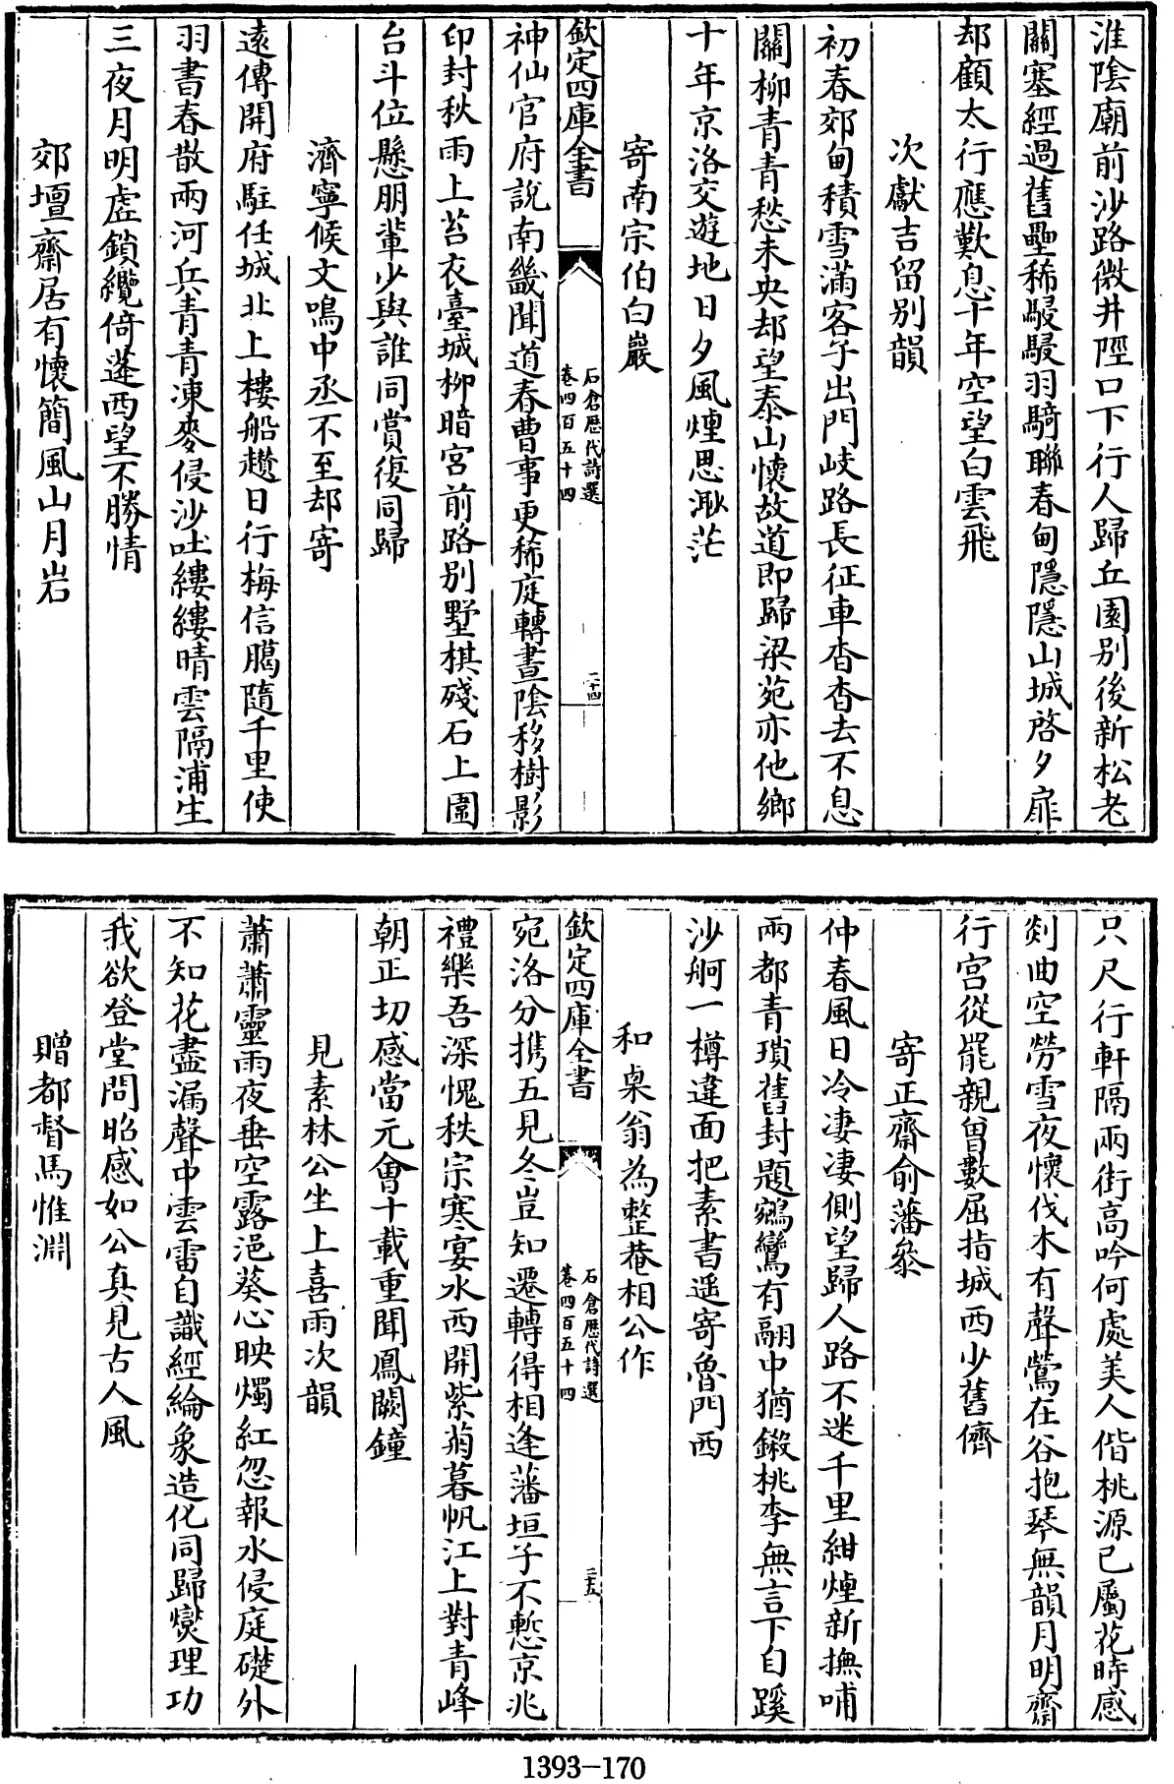 淮陰廟前沙路微井陘口下行人歸丘園别後新松老
關塞經過舊壘稀駸駸羽騎聯春甸隱隱山城啓夕扉
却顧太行應歎息十年空望白雲飛
次獻吉留别韻
初春郊甸積雪滿客子出門岐路長征車杳杳去不息
關柳青青愁未央却望泰山懷故道即歸梁苑亦他鄉
十年京洛交遊地日夕風煙思渺茫
寄南宗伯白巖
欽定四庫全書
石倉歴代詩選
卷四百五十四
二十四
神仙官府說南畿聞道春曹事更稀庭轉晝陰移樹影
印封秋雨上苔衣臺城柳暗宫前路别墅棋殘石上圍
台斗位懸朋輩少與誰同賞復同歸
濟寧候文鳴中丞不至却寄
遠傳開府駐任城北上樓船趲日行梅信臈隨千里使
羽書春散兩河兵青青凍麥侵沙吐縷縷晴雲隔浦生
三夜月明虚鎖纜倚蓬西望不勝情
郊壇齋居有懷簡風山月岩
只尺行軒隔兩街高吟何處美人偕桃源已屬花時感
剡曲空勞雪夜懷伐木有聲鶯在谷抱琴無韻月明齋
行宫從罷親曾數屈指城西少舊儕
寄正齋俞藩叅
仲春風日冷凄凄側望歸人路不迷千里紺煙新撫哺
兩都青瑣舊封題鵷鸞有翮中猶鎩桃李無言下自蹊
沙舸一樽違面把素書遥寄魯門西
和泉翁為整菴相公作
欽定四庫全書
石倉歴代詩選
卷四百五十四
二十五
宛洛分携五見冬豈知遷轉得相逢藩垣子不慙京兆
禮樂吾深愧秩宗寒宴水西開紫菊暮帆江上對青峰
朝正切感當元會十載重聞鳳闕鐘
見素林公坐上喜雨次韻
蕭蕭靈雨夜垂空露浥葵心映燭紅忽報水侵庭礎外
不知花盡漏聲中雲雷自識經綸象造化同歸燮理功
我欲登堂問昭感如公真見古人風
贈都督馬惟淵
1393-170